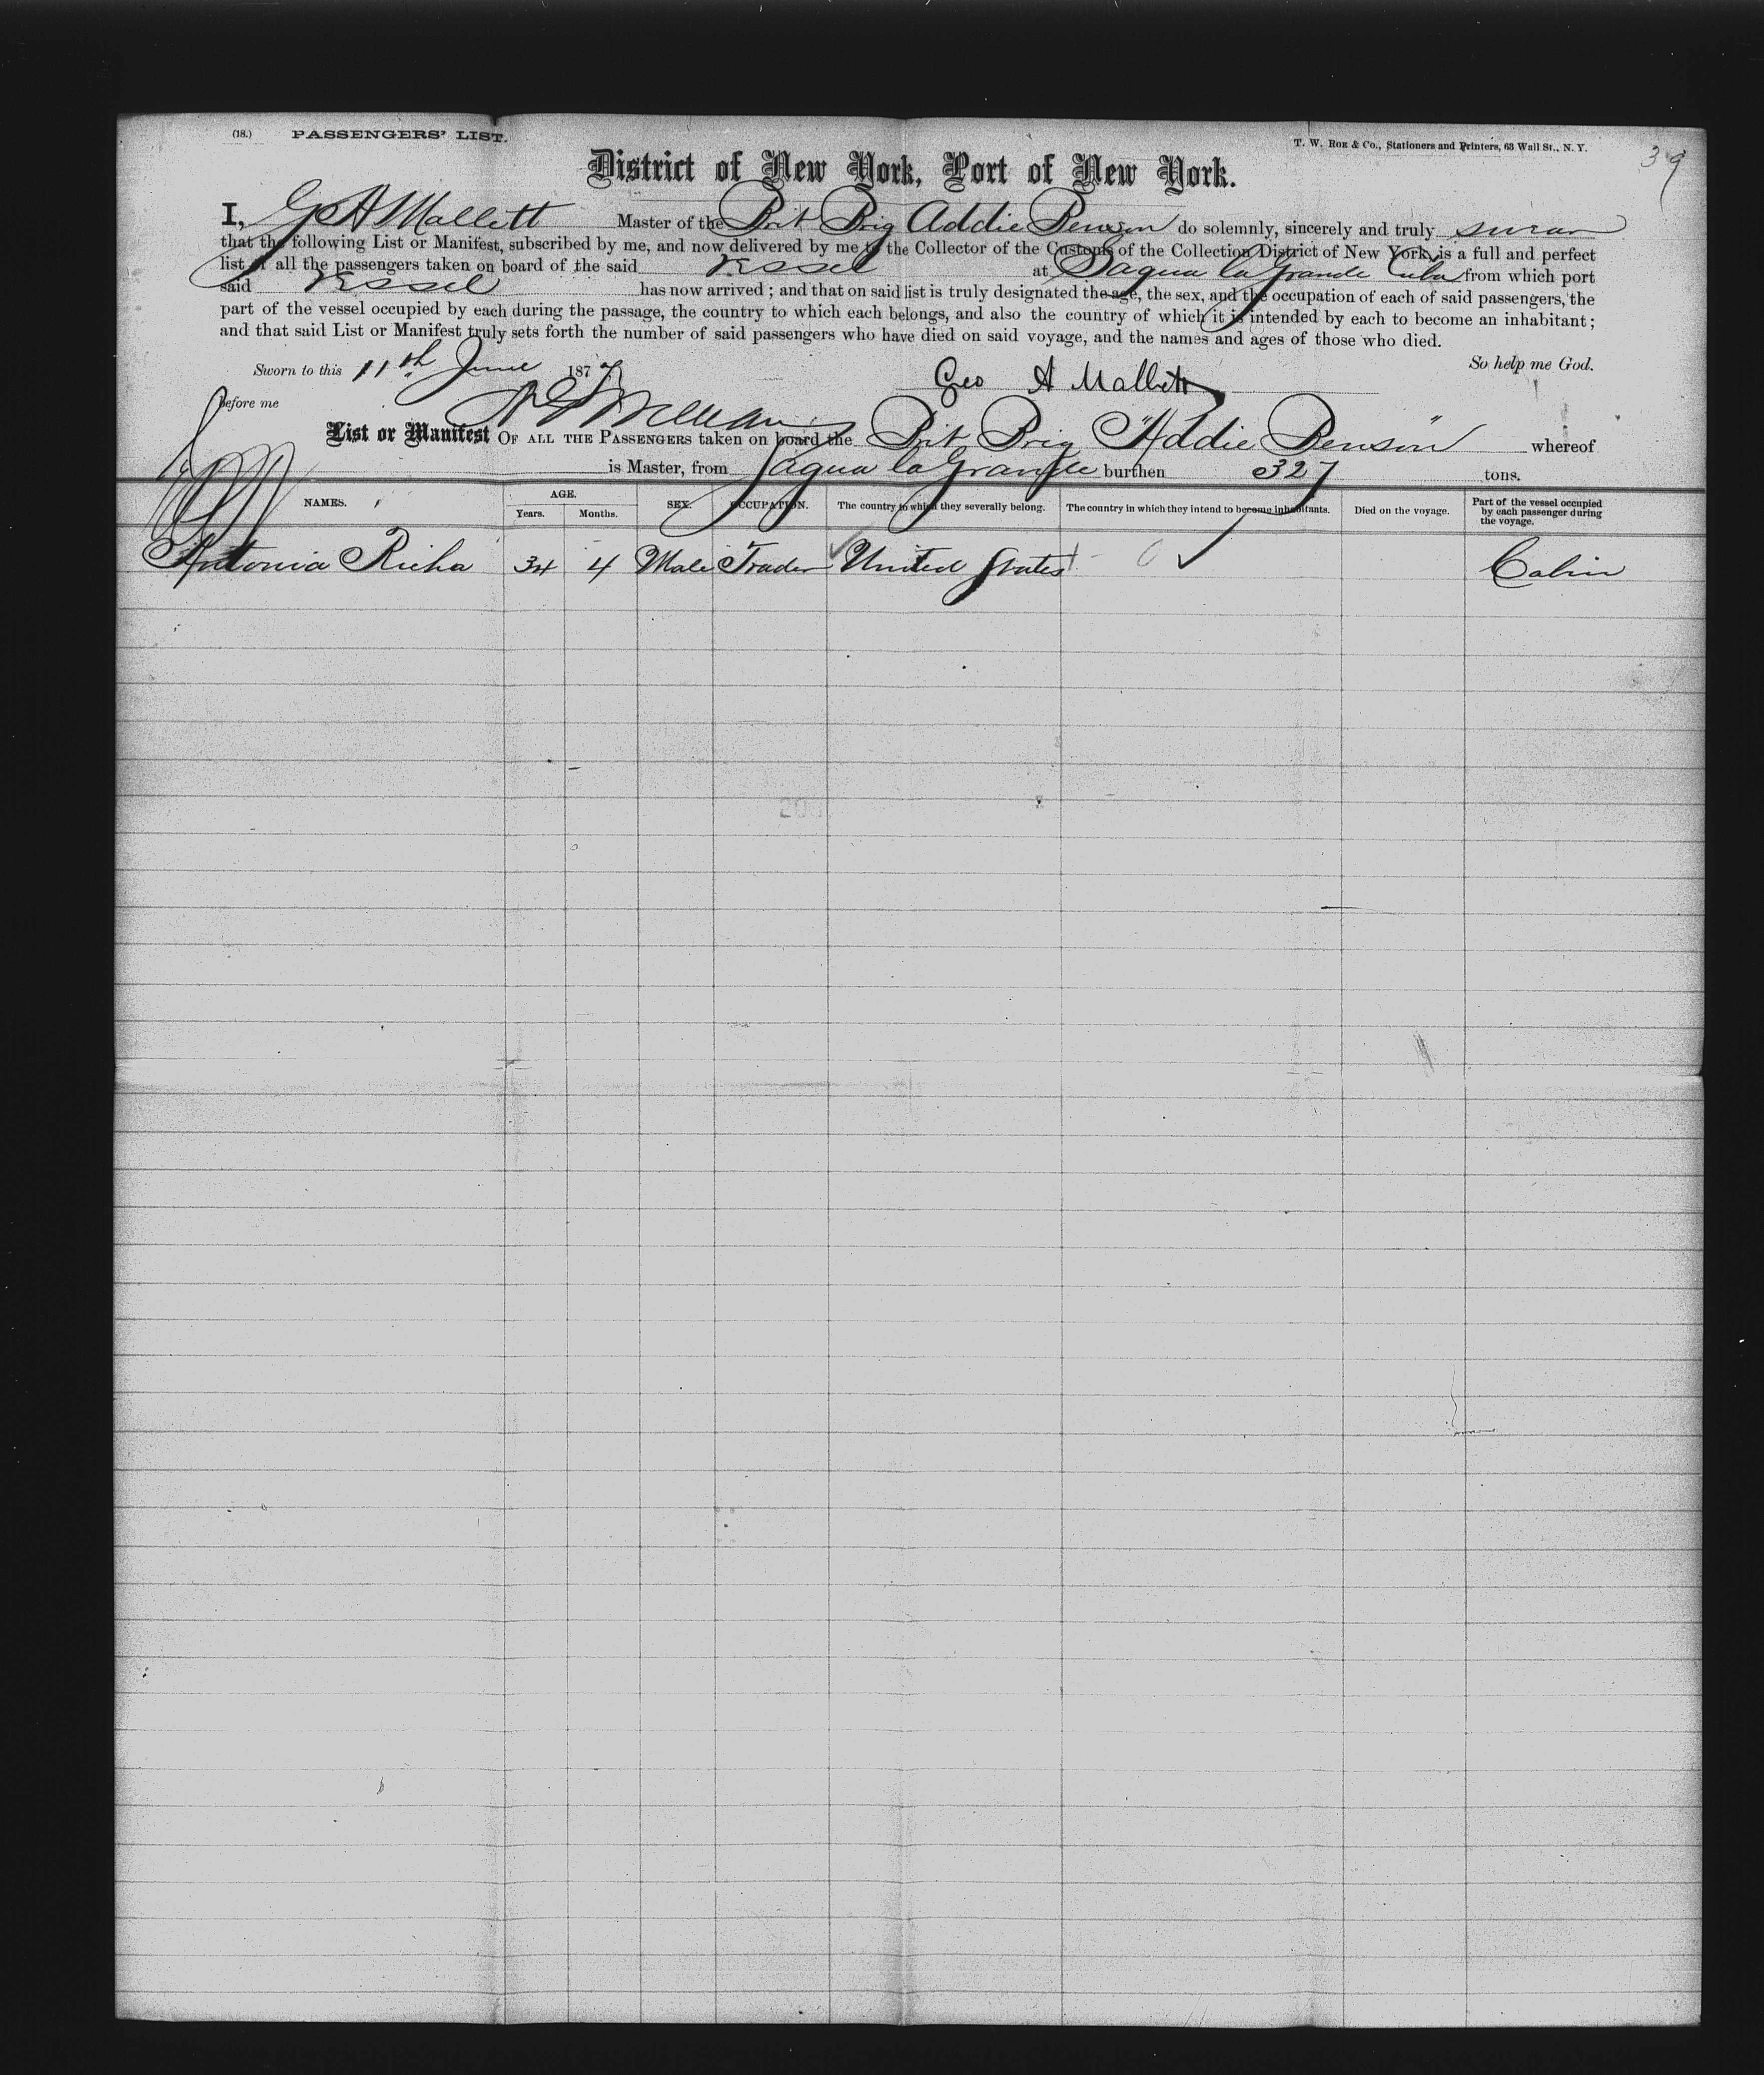 (18.) PASSENGERS' LIST.
T. W. ROE & CO., Stationers and Printers, 63 Wall St., N. Y.
39
District of New York, Port of New York.
I, G A Mallett Master of the Brit Brig Addie Benson do solemnly, sincerely and truly swear
that the following List or Manifest, subscribed by me, and now delivered by me to the Collector of the Customs of the Collection District of New York, is a full and perfect
list of all the passengers taken on board of the said Vessel at Sagua la Grande Cuba from which port
said Vessel has now arrived; and that on said list is truly designated the age, the sex, and the occupation of each of said passengers, the
part of the vessel occupied by each during the passage, the country to which each belongs, and also the country of which it is intended by each to become an inhabitant;
and that said List or Manifest truly sets forth the number of said passengers who have died on said voyage, and the names and ages of those who died.
Sworn to this 11th June 1877 So help me God.
Geo A Mallett
before me
List or Manifest OF ALL THE PASSENGERS taken on board the Brit Brig "Addie Benson" whereof
is Master, from Sagua la Grande burthen 327 tons.
NAMES. AGE. Years. Months. SEX. OCCUPATION. The country to which they severally belong. The country in which they intend to become inhabitants. Died on the voyage. Part of the vessel occupied by each passenger during the voyage.
Antonia Richa 34 4 Male Trader United States Cabin